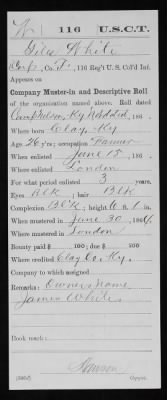 W | 116 | U.S.C.T.
Giles White
Corp., Co. F, 116 Reg't U. S. Col'd Inf.
Appears on
Company Muster-in and Descriptive Roll
of the organization named above. Roll dated
Camp Nelson, Ky 186 .
Where born Clay, Ky
Age 26 y'rs; occupation Farmer
When enlisted June 15, 186 .
Where enlisted London
For what period enlisted 3 years.
Eyes Blk; hair Blk
Complexion Bl'k; height 6 ft. 1 in.
When mustered in June 30, 1864.
Where mustered in London
Bounty paid $ 100; due $ 100
Where credited Clay Co. Ky.
Company to which assigned
Remarks: Owners name
James White
Book mark: